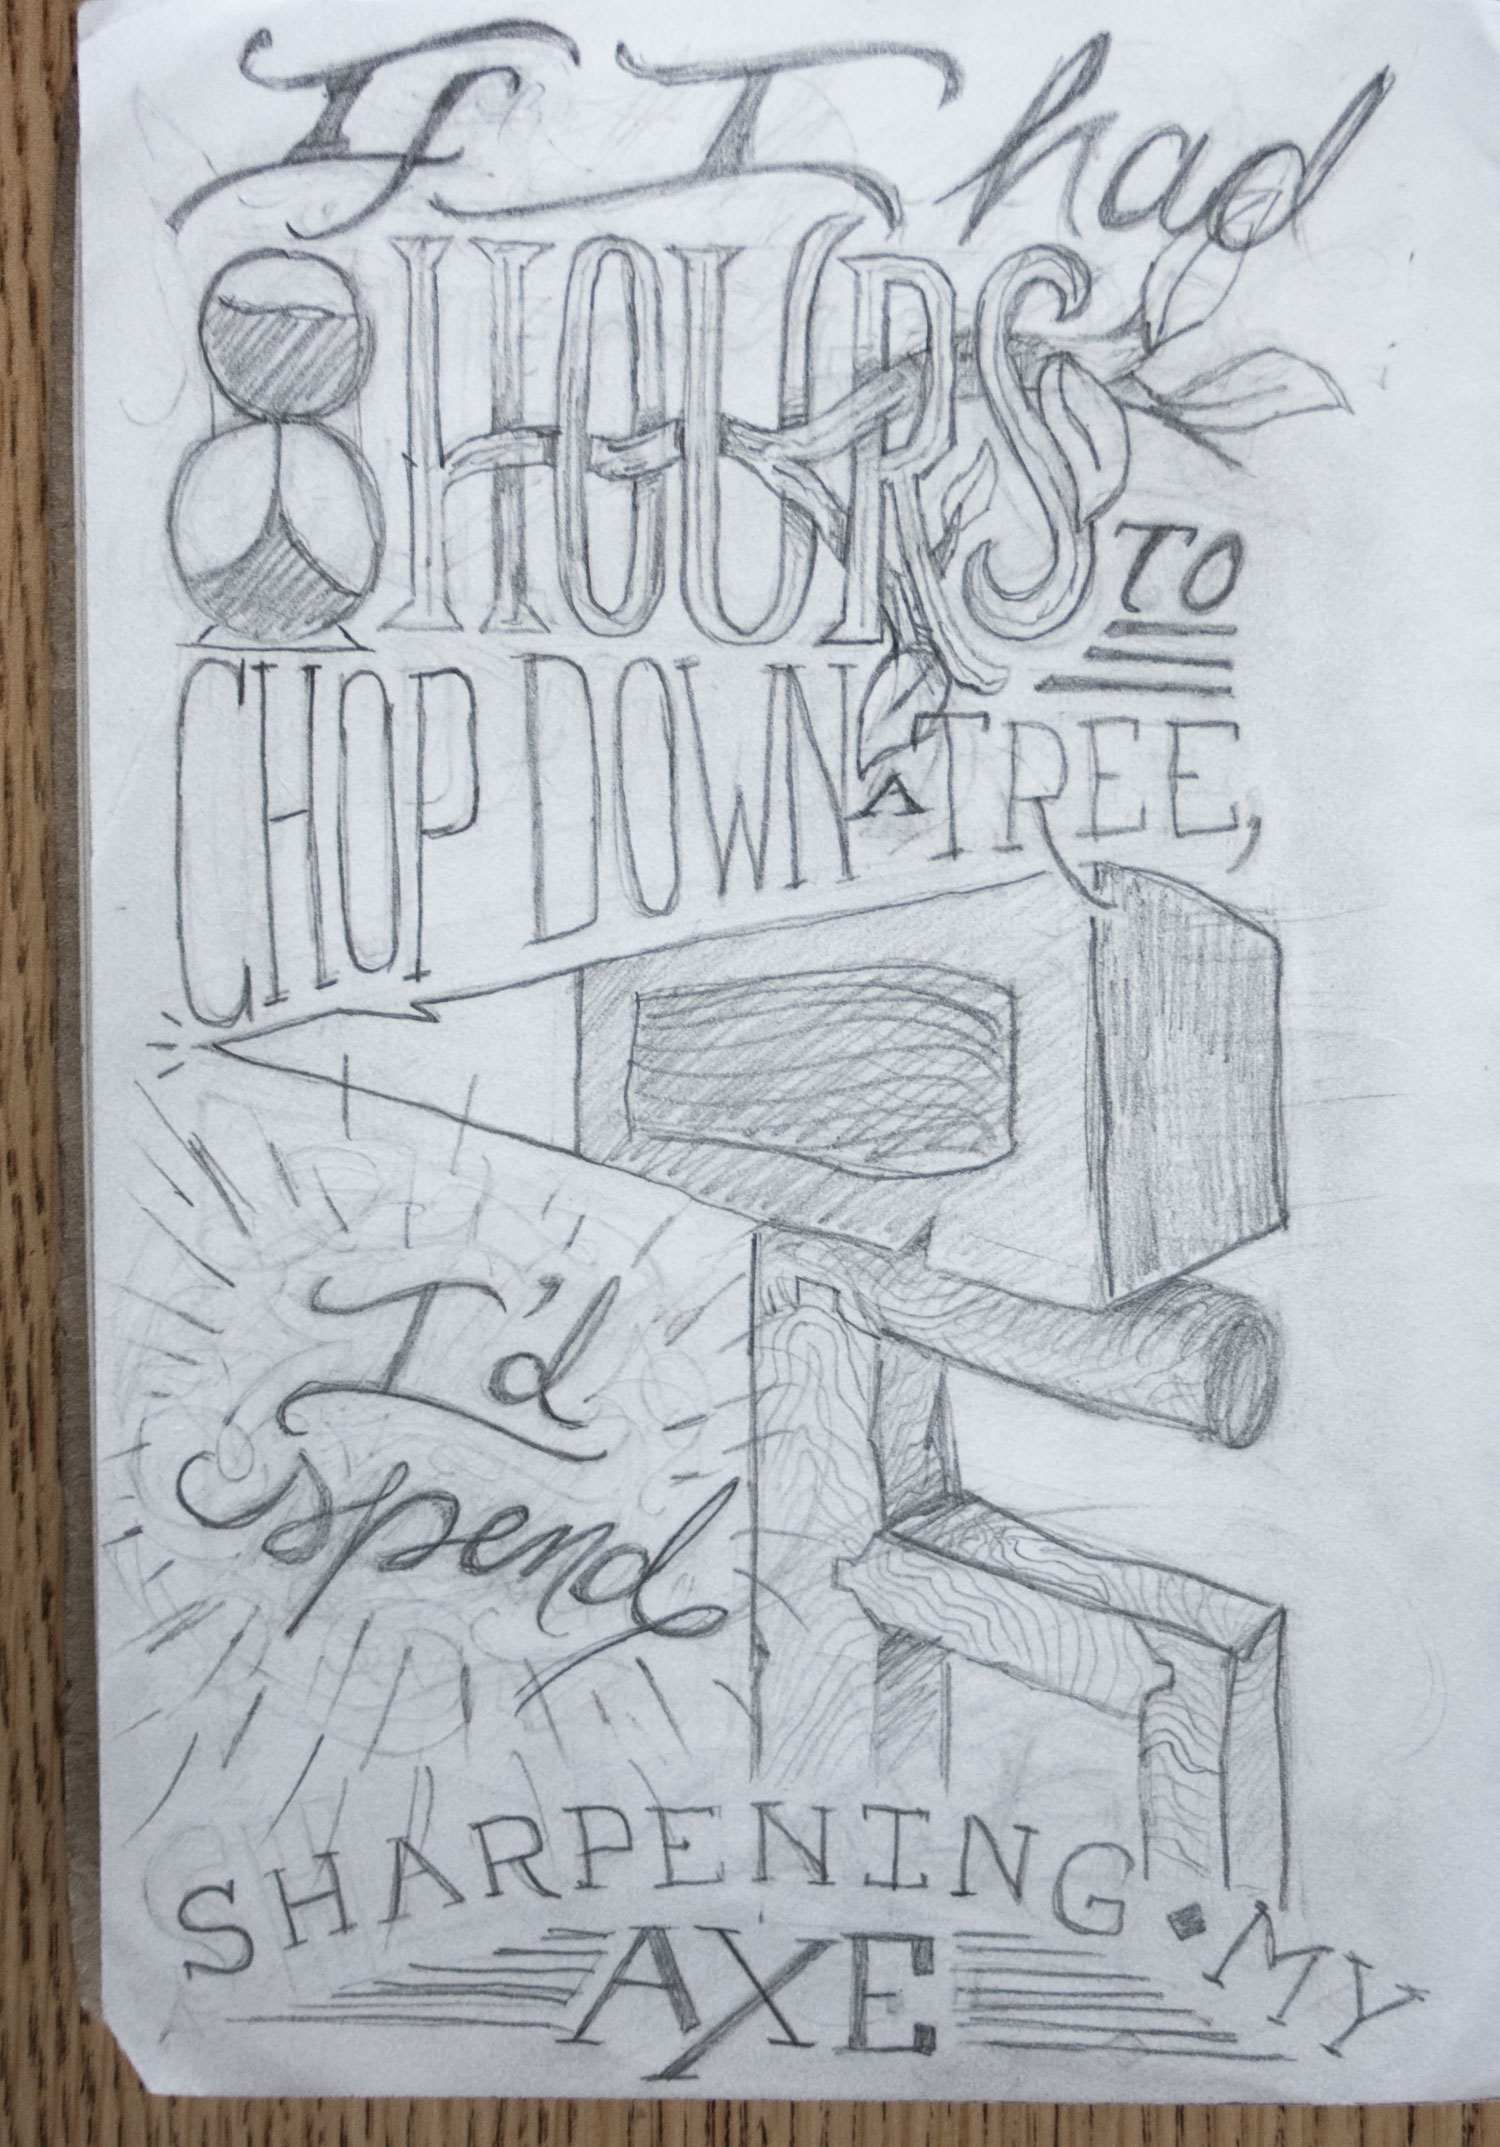 If I had
8 HOURS
TO
CHOP DOWN A TREE,
I'd
spend
SHARPENING • MY
AXE